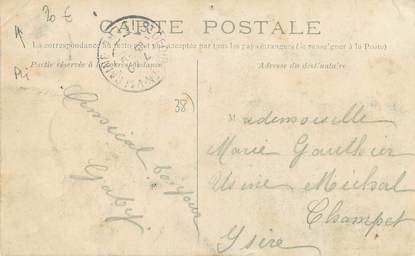 20 €
CARTE POSTALE
La correspondance au recto n'est pas acceptée par tous les pays étrangers (Se renseigner à la Poste)
Partie réservée à la correspondance
Adresse du destinataire
38
Amical bonjour
Gaby
Mademoiselle
Marie Gauthier
Usine Michal
Champet
Isère